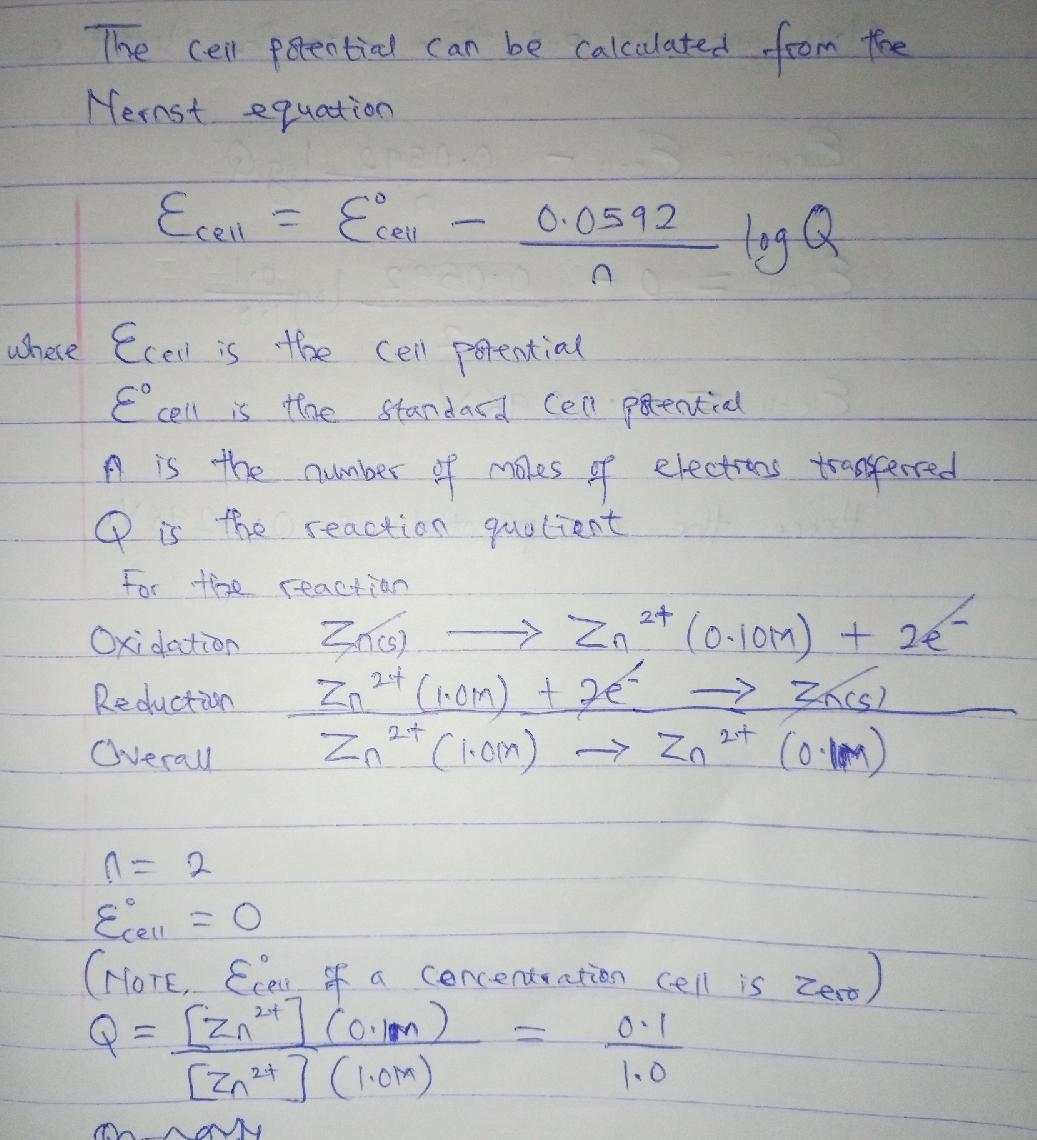 The cell potential can be calculated from the
Nernst equation
Ɛcell = Ɛ°cell - 0.0592/n log Q
where Ɛcell is the cell potential
Ɛ°cell is the standard cell potential
n is the number of moles of electrons transferred
Q is the reaction quotient
For the reaction
Oxidation Zn(s) → Zn²⁺ (0.10M) + 2e⁻
Reduction Zn²⁺ (1.0M) + 2e⁻ → Zn(s)
Overall Zn²⁺ (1.0M) → Zn²⁺ (0.1M)
n = 2
Ɛ°cell = 0
(NOTE, Ɛ°cell of a concentration cell is zero)
Q = [Zn²⁺] (0.1M) / [Zn²⁺] (1.0M) = 0.1/1.0